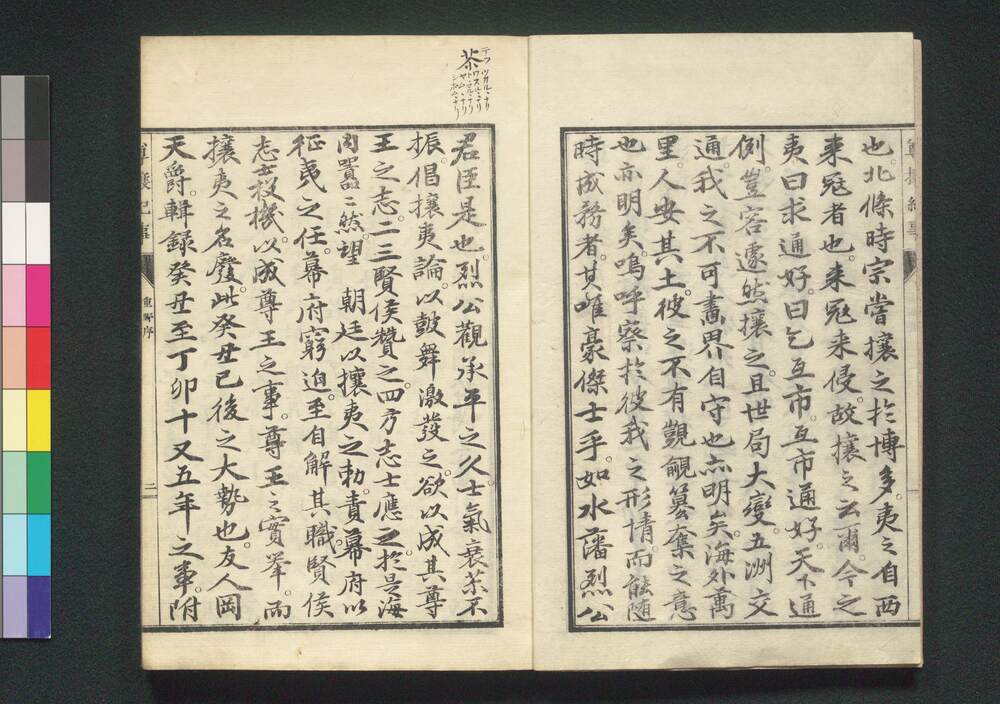 也。北條時宗嘗攘之於博多。夷之自西
来冦者也。来冦来侵。故攘之云爾。今之
夷曰求通好。曰乞互市。互市通好。天下通
例。豈容遽然攘之。且世局大變。五洲交
通。我之不可畫界自守也亦明矣。海外萬
里。人安其土。彼之不有覬覦簒奪之意
也亦明矣。嗚呼察於彼我之形情。而能随
時成務者。其唯豪傑士乎。如水藩烈公
君臣是也。烈公觀承平之久。士氣衰苶不
振。倡攘夷論。以鼓舞激發之。欲以成其尊
王之志。二三賢侯贊之。四方志士應之。於是海
内囂〻然。望 朝廷以攘夷之勅。責幕府以
征夷之任。幕府窮迫。至自解其職。賢侯
志士投機。以成尊王之事。尊王之實擧。而
攘夷之名廢。此癸丑已後之大勢也。友人岡
天爵。輯録癸丑至丁卯十又五年之事。附
尊攘紀事
重野序
二